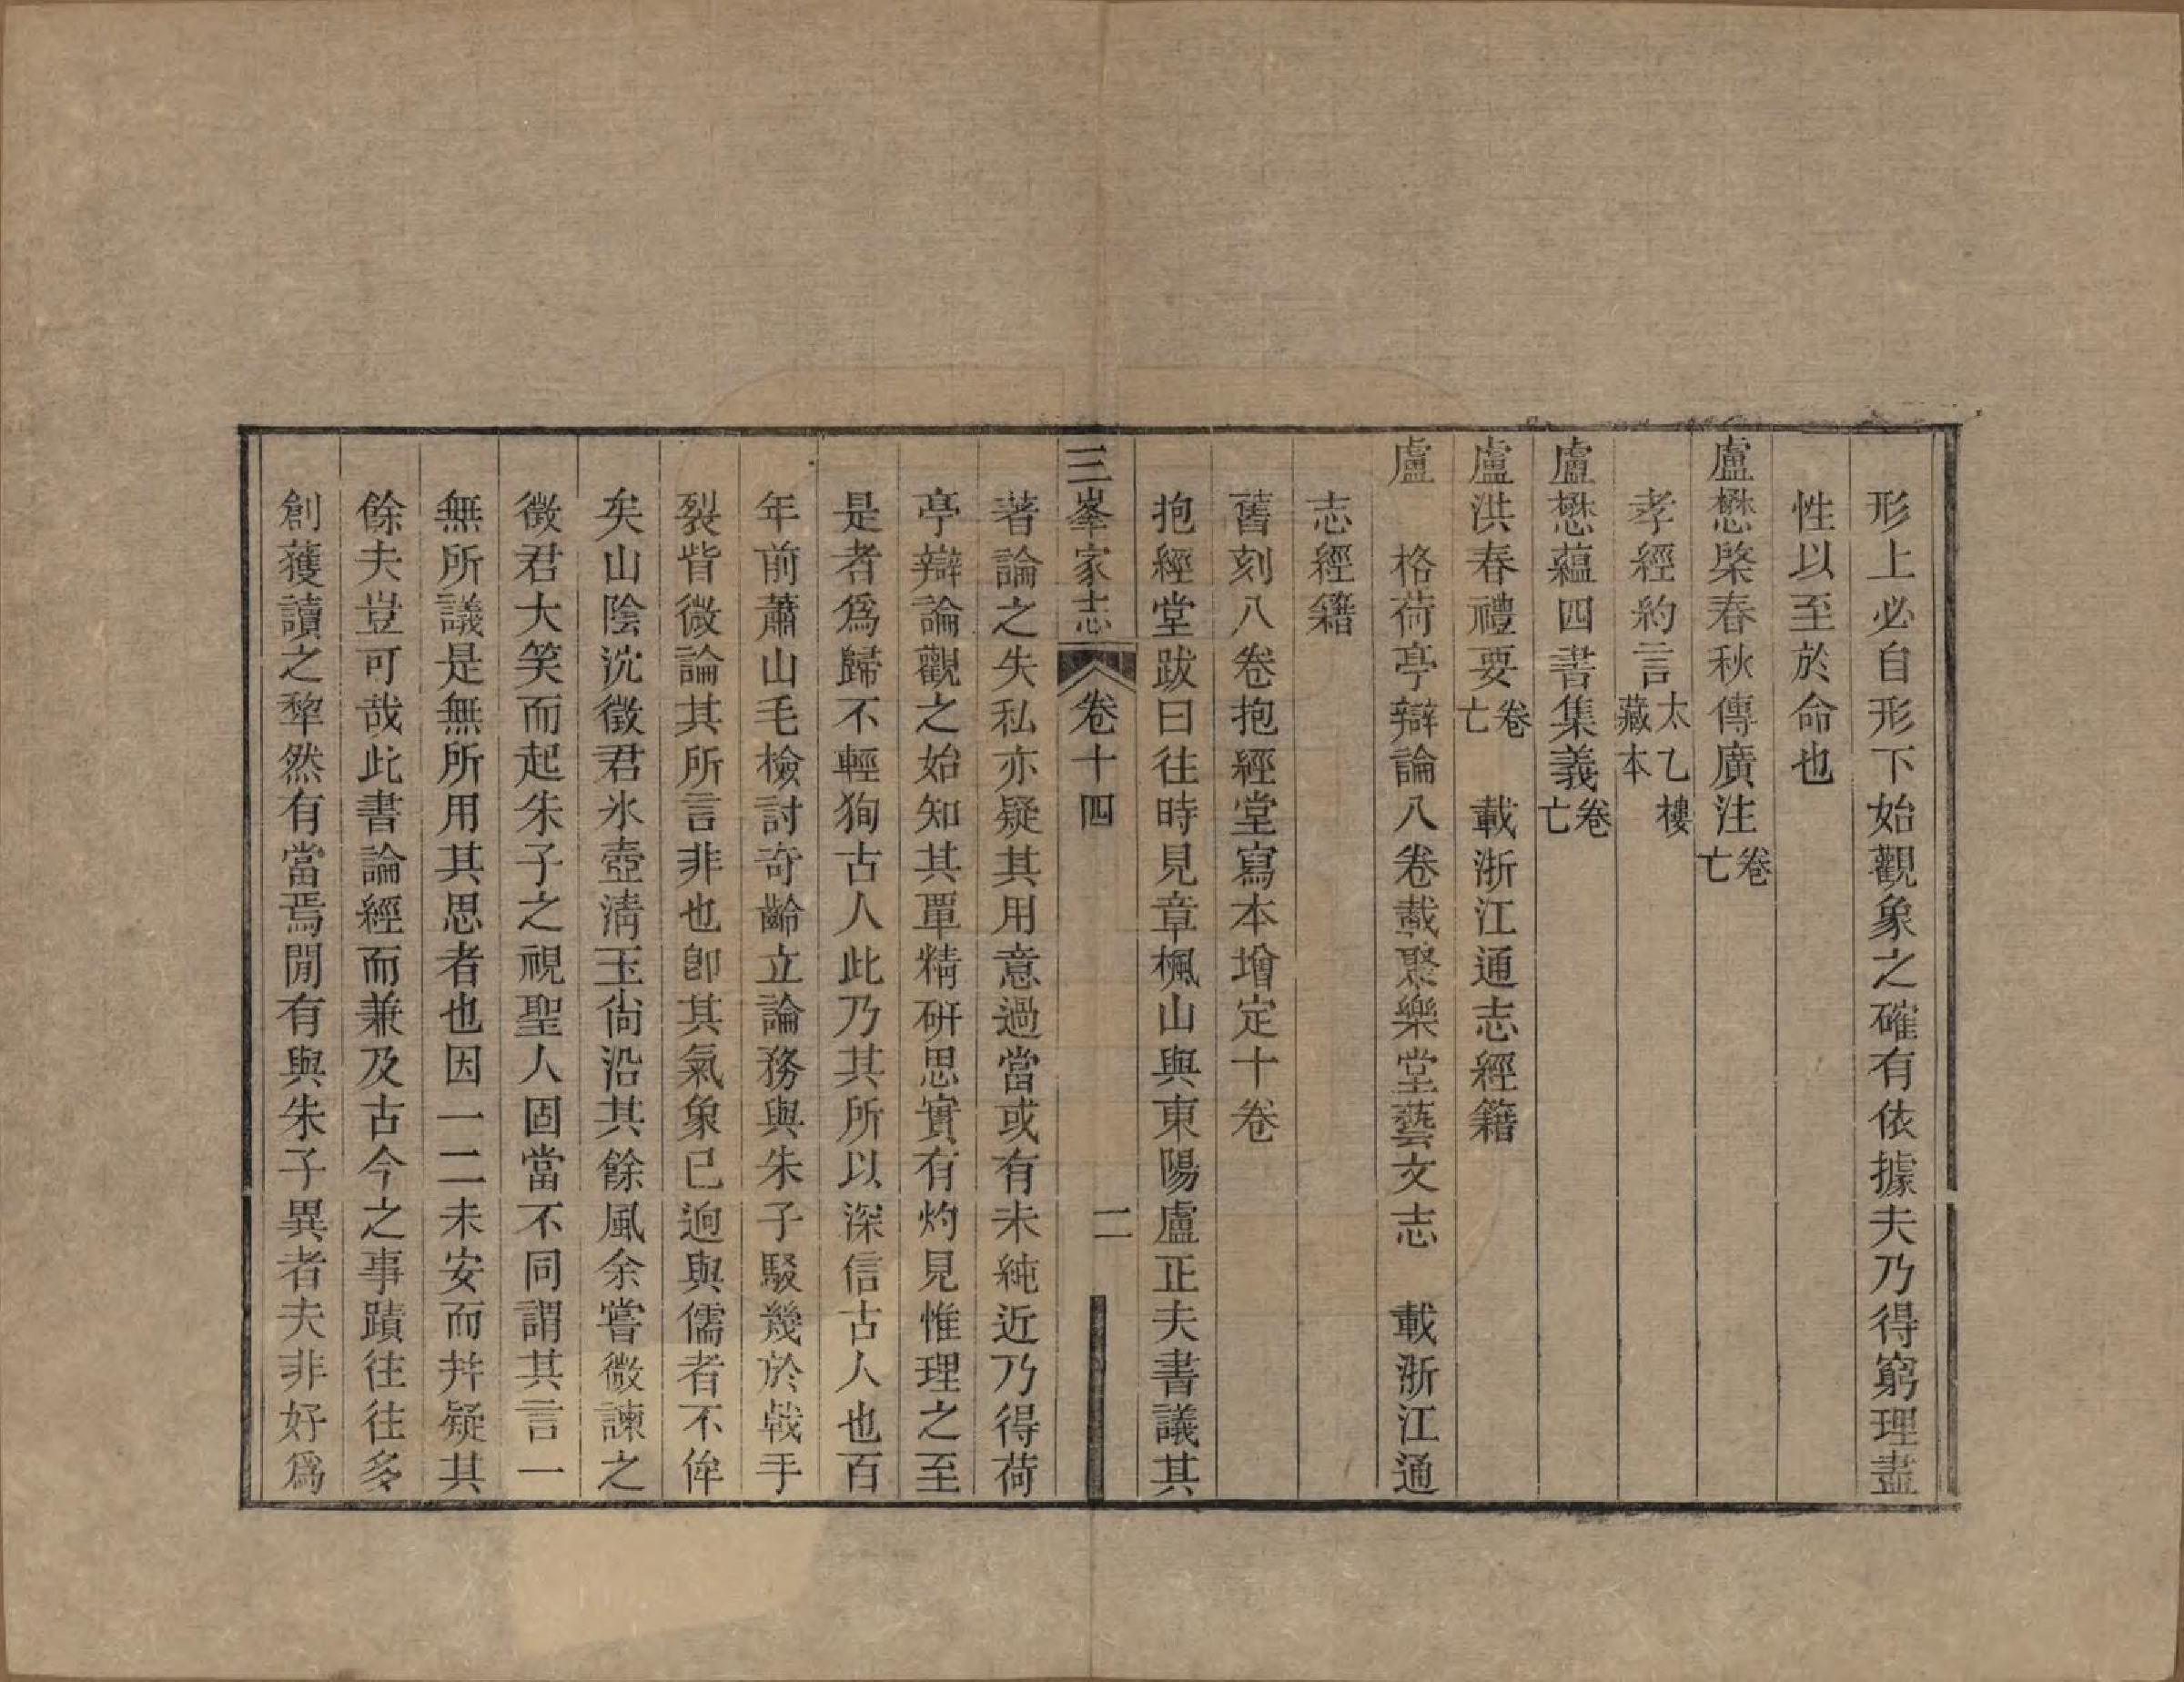 形上必自形下始觀象之確有依據夫乃得窮理盡
性以至於命也
盧懋棨春秋傳廣注卷亡
孝經約言太乙樓藏本
盧懋蘊四書集義卷亡
盧洪春禮要卷亡　載浙江通志經籍
盧　格荷亭辯論八卷載聚樂堂藝文志　載浙江通
志經籍
舊刻八卷抱經堂寫本增定十卷
抱經堂跋曰往時見章楓山與東陽盧正夫書議其
三峯家志　卷十四　二
著論之失私亦疑其用意過當或有未純近乃得荷
亭辯論觀之始知其覃精研思實有灼見惟理之至
是者為歸不輕狥古人此乃其所以深信古人也百
年前蕭山毛檢討奇齡立論務與朱子駮幾於戟手
裂眥微論其所言非也卽其氣象已逈與儒者不侔
矣山陰沈徵君氷壺淸玉尙沿其餘風余嘗微諫之
徵君大笑而起朱子之視聖人固當不同謂其言一
無所議是無所用其思者也因一二未安而幷疑其
餘夫豈可哉此書論經而兼及古今之事蹟往往多
創獲讀之犂然有當焉閒有與朱子異者夫非好爲